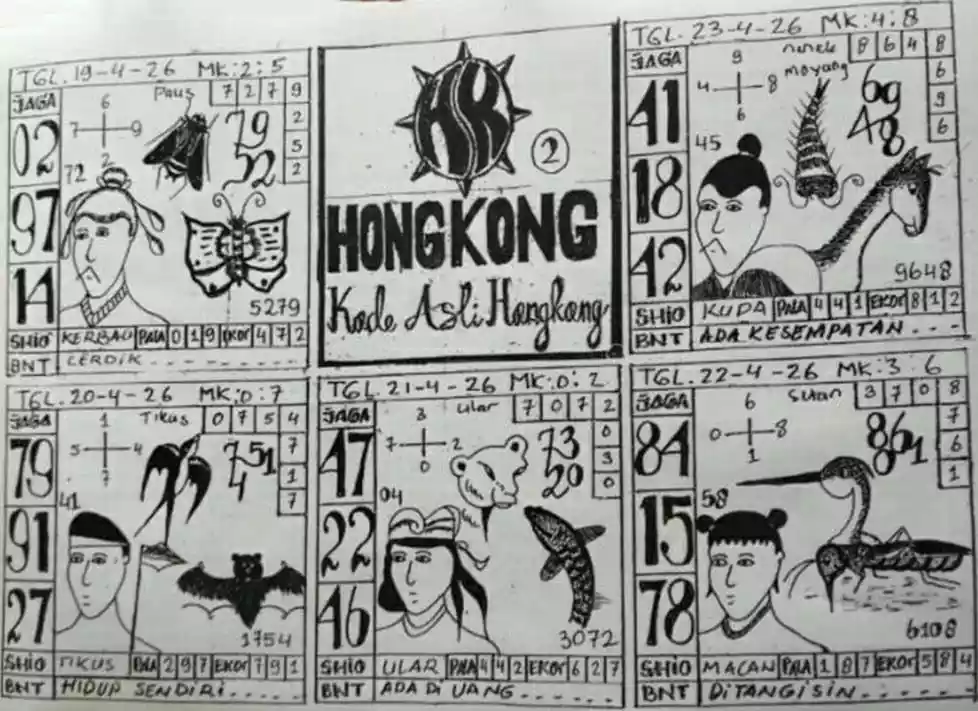 TGL. 19-4-26 MK:2:5
JAGA
02
97
14
6
7 9
2
72
Paus
7 2 7 9
2
5
2
79
52
5279
SHIO KERBAU PALA 0 1 9 EKOR 4 7 2
BNT CERDIK . . . . . . .
HK
2
HONGKONG
Kode Asli Hongkong
TGL. 23-4-26 MK:4:8
JAGA
41
18
42
9
4 8
6
45
nenek
moyang
8 6 4 8
6
9
6
69
48
9648
SHIO KUDA PALA 4 4 1 EKOR 8 1 2
BNT ADA KESEMPATAN . . .
TGL. 20-4-26 MK:0:7
JAGA
79
91
27
1
5 4
7
41
Tikus
0 7 5 4
7
1
7
751
4
1754
SHIO TIKUS PALA 2 9 7 EKOR 7 9 1
BNT HIDUP SENDIRI . . . . .
TGL. 21-4-26 MK:0:2
JAGA
47
22
46
3
7 2
0
04
ular
7 0 7 2
0
3
0
73
20
3072
SHIO ULAR PALA 4 4 2 EKOR 6 2 7
BNT ADA DI UANG . . . . . .
TGL. 22-4-26 MK:3:6
JAGA
84
15
78
6
0 8
1
58
3 7 0 8
7
6
1
861
8
6108
SHIO MACAN PALA 1 8 7 EKOR 5 8 4
BNT DITANGISIN . . . . .